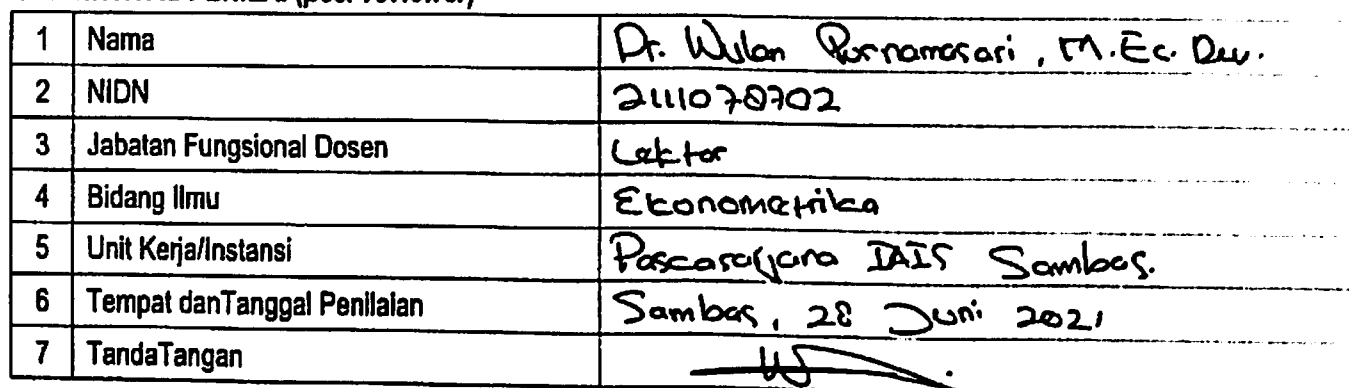 (peer reviewer)
1 Nama Dr. Wulan Purnamasari, M.Ec. Dev.
2 NIDN 2111078702
3 Jabatan Fungsional Dosen Lektor
4 Bidang Ilmu Ekonometrika
5 Unit Kerja/Instansi Pascasarjana IAIS Sambas.
6 Tempat danTanggal Penilaian Sambas, 28 Juni 2021
7 TandaTangan